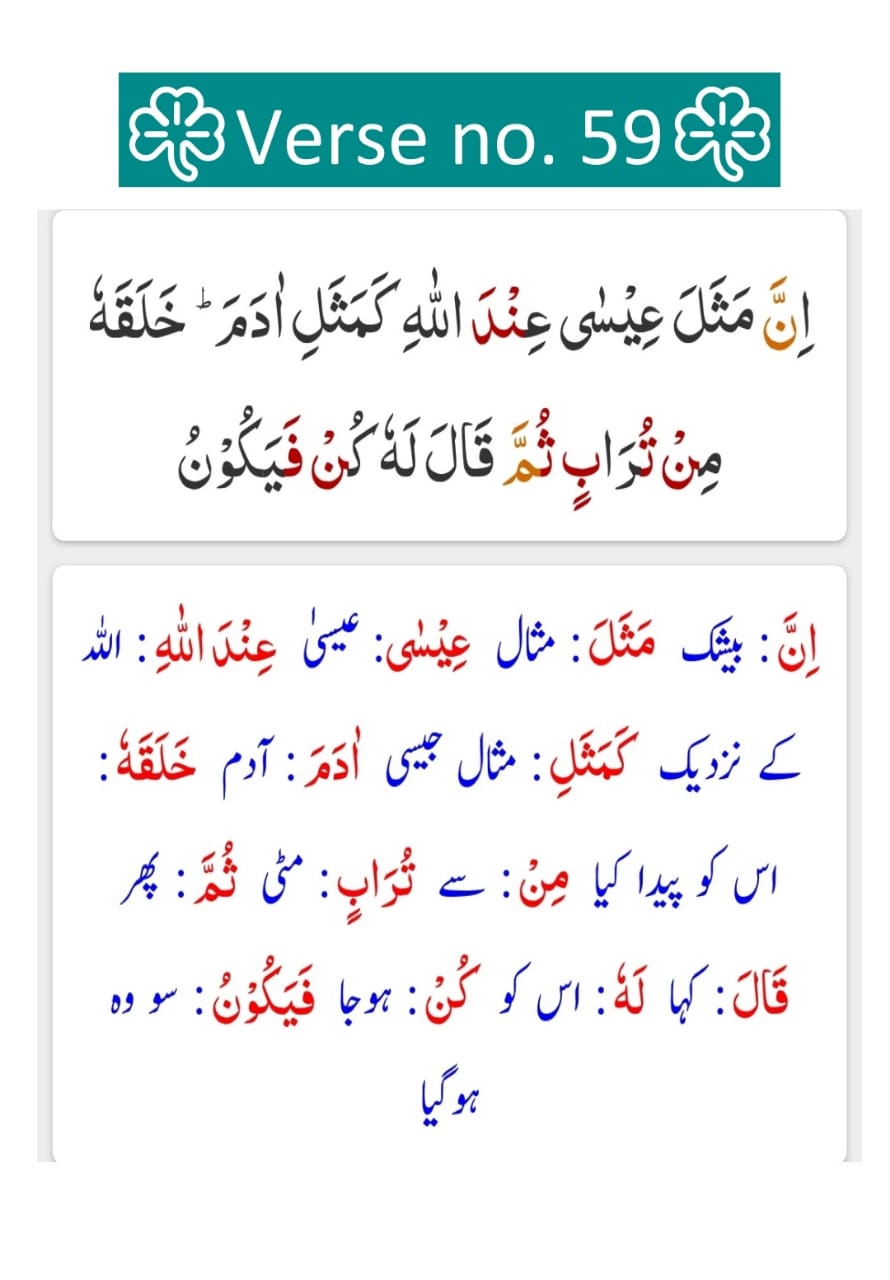 Verse no. 59
اِنَّ مَثَلَ عِيْسٰى عِنْدَ اللّٰهِ كَمَثَلِ اٰدَمَ ؕ خَلَقَهٗ
مِنْ تُرَابٍ ثُمَّ قَالَ لَهٗ كُنْ فَيَكُوْنُ
اِنَّ : بیشک مَثَلَ : مثال عِيْسٰى : عیسیٰ عِنْدَ اللّٰهِ : اللہ
کے نزدیک كَمَثَلِ : مثال جیسی اٰدَمَ : آدم خَلَقَهٗ :
اس کو پیدا کیا مِنْ : سے تُرَابٍ : مٹی ثُمَّ : پھر
قَالَ : کہا لَهٗ : اس کو كُنْ : ہوجا فَيَكُوْنُ : سو وہ
ہوگیا